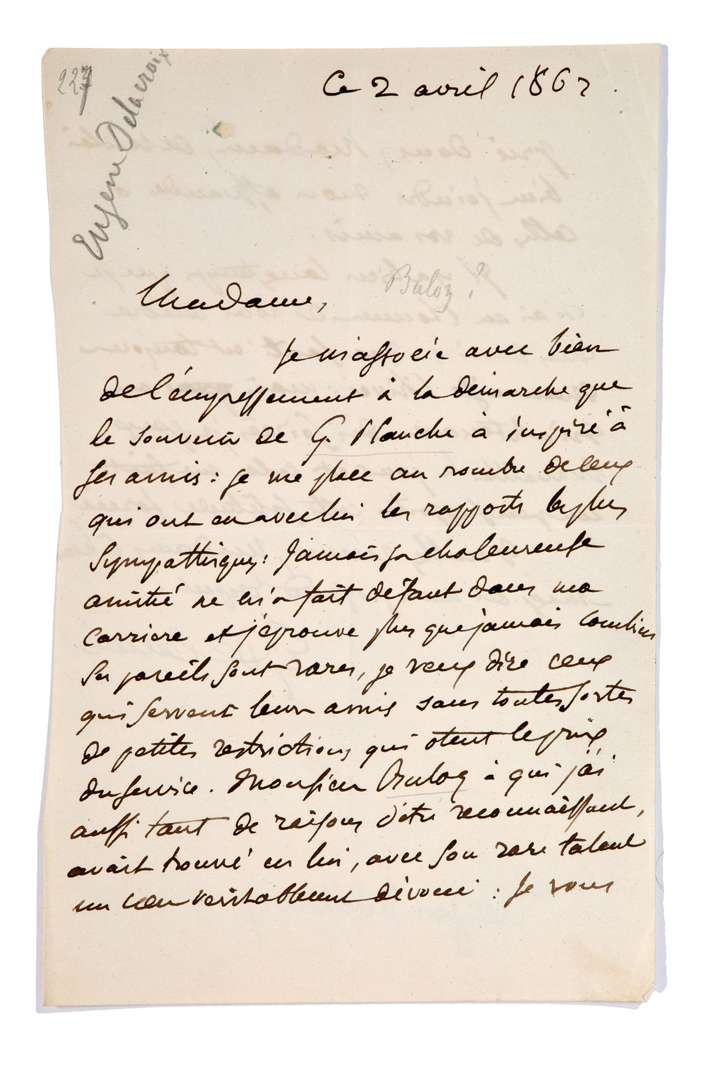 223
Eugene Delacroix
Ce 2 avril 1862.
Buloz ?
Madame,
Je m'associe avec bien
de l'empressement à la démarche que
le souvenir de G. Planche à inspiré à
ses amis : je me place au nombre de ceux
qui ont eu avec lui les rapports les plus
sympathiques : Jamais sa chaleureuse
amitié ne m'a fait défaut dans ma
carriere et j'eprouve plus que jamais combien
ses pareils sont rares, je veux dire ceux
qui servent leurs amis sans toutes sortes
de petites restrictions qui otent le prix
du service. Monsieur Buloz à qui j'ai
aussi tant de raisons d'être reconnaissant,
avait trouvé en lui, avec son rare talent
un cœur veritablement dévoué : Je vous